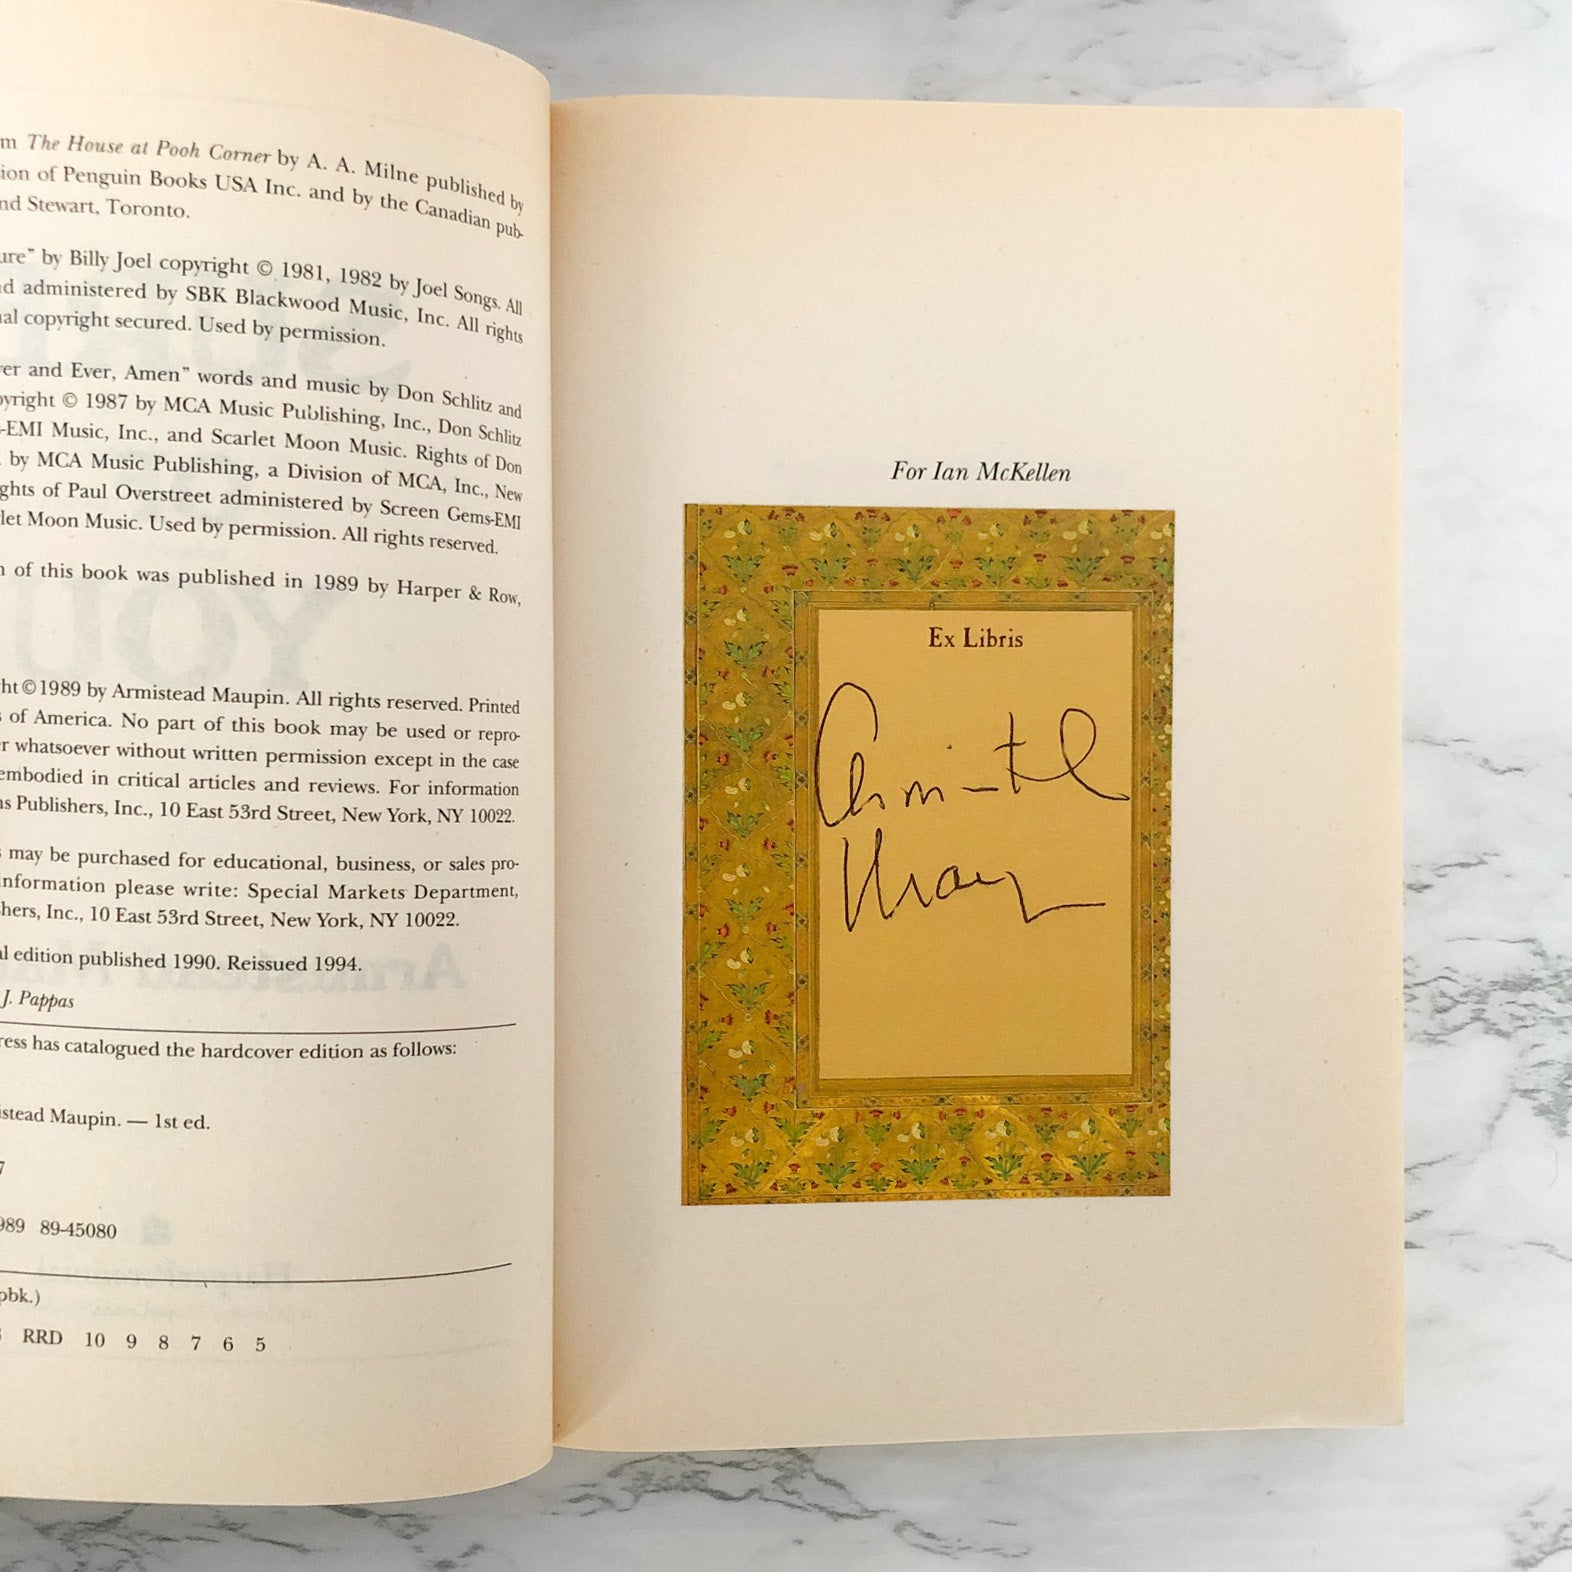 m The House at Pooh Corner by A. A. Milne published by
ion of Penguin Books USA Inc. and by the Canadian pub-
nd Stewart, Toronto.
ure” by Billy Joel copyright © 1981, 1982 by Joel Songs. All
d administered by SBK Blackwood Music, Inc. All rights
nal copyright secured. Used by permission.
er and Ever, Amen” words and music by Don Schlitz and
pyright © 1987 by MCA Music Publishing, Inc., Don Schlitz
s-EMI Music, Inc., and Scarlet Moon Music. Rights of Don
by MCA Music Publishing, a Division of MCA, Inc., New
ghts of Paul Overstreet administered by Screen Gems-EMI
let Moon Music. Used by permission. All rights reserved.
n of this book was published in 1989 by Harper & Row,
ht © 1989 by Armistead Maupin. All rights reserved. Printed
s of America. No part of this book may be used or repro-
r whatsoever without written permission except in the case
embodied in critical articles and reviews. For information
ns Publishers, Inc., 10 East 53rd Street, New York, NY 10022.
s may be purchased for educational, business, or sales pro-
information please write: Special Markets Department,
hers, Inc., 10 East 53rd Street, New York, NY 10022.
al edition published 1990. Reissued 1994.
J. Pappas
ress has catalogued the hardcover edition as follows:
istead Maupin. — 1st ed.
7
989 89-45080
pbk.)
RRD 10 9 8 7 6 5
For Ian McKellen
Ex Libris
Armistead
Maupin